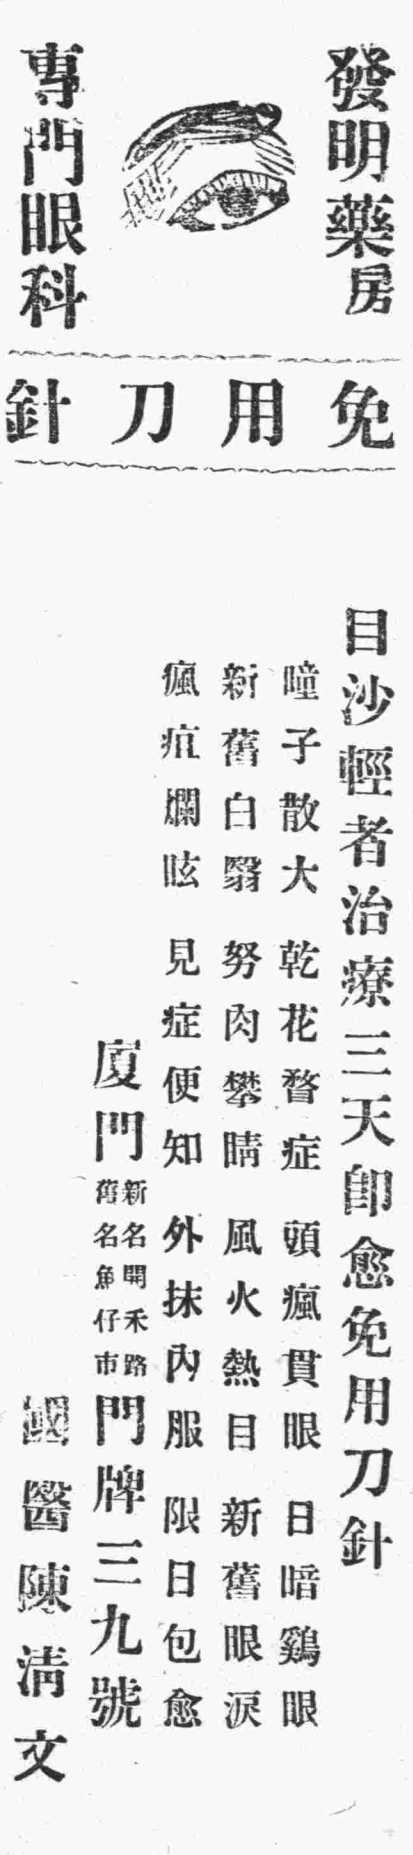 發明藥房
專門眼科
免用刀針
目沙輕者治療三天卽愈免用刀針
瞳子散大 乾花瞀症 頭瘋貫眼 日暗鷄眼
新舊白翳 努肉攀睛 風火熱目 新舊眼淚
瘋疽爛眩 見症便知 外抹內服 限日包愈
廈門
新名開禾路
舊名魚仔市
門牌三九號
國醫陳淸文